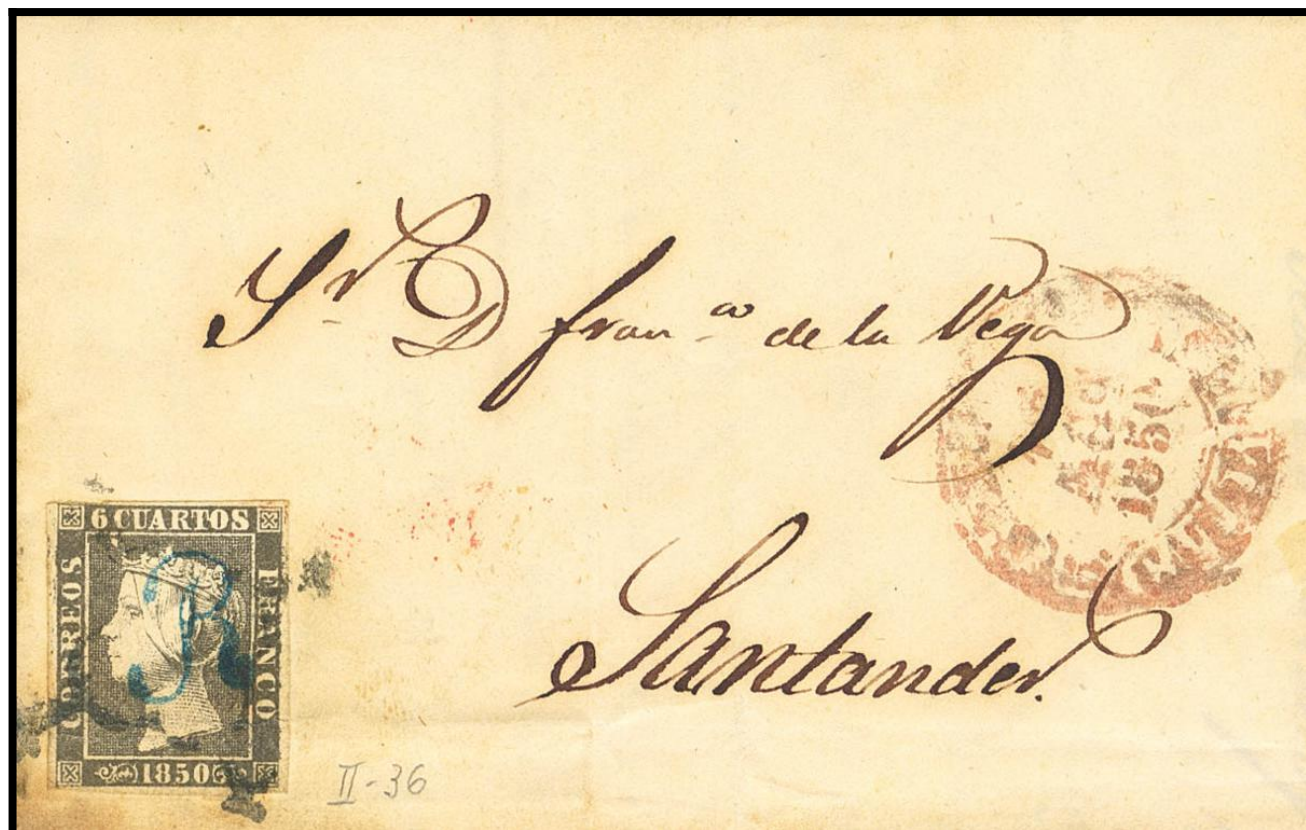 Sr D Franco de la Vega
AGO
1850
Santander.
6 CUARTOS
CORREOS
FRANCO
R
1850
II-36